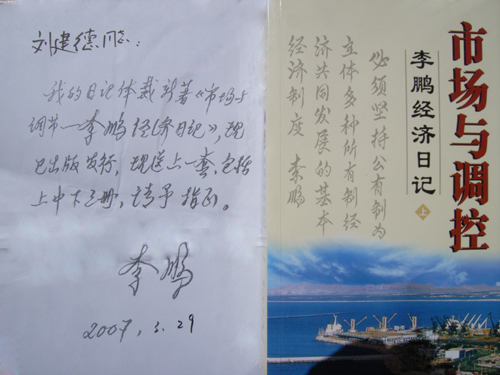 刘建德同志：
我的日记体裁新著《市场与
调节—李鹏经济日记》，现
已出版发行，现送上一套，包括
上中下三册，请予指正。
李鹏
2007.3.29
市场与调控
李鹏经济日记
上
必须坚持公有制为
主体多种所有制经
济共同发展的基本
经济制度 李鹏